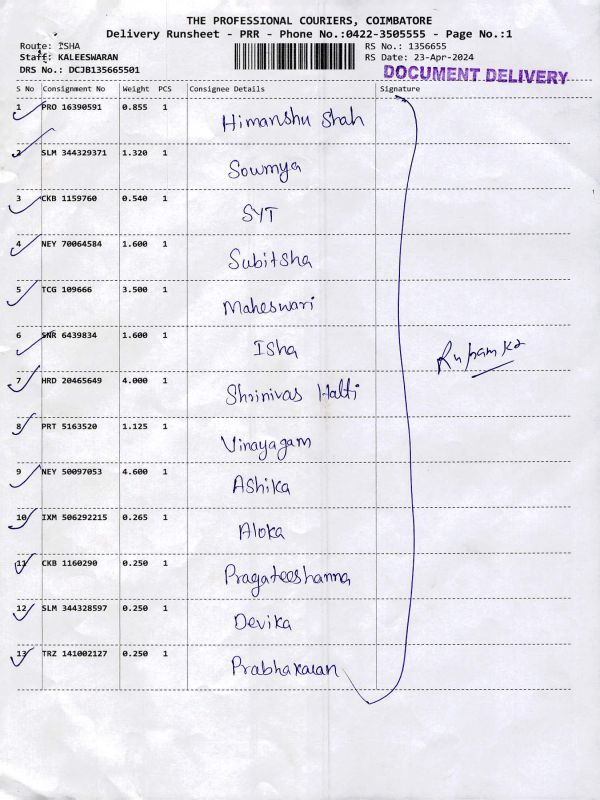 THE PROFESSIONAL COURIERS, COIMBATORE
Delivery Runsheet - PRR - Phone No.:0422-3505555 - Page No.:1
Route: ISHA RS No.: 1356655
Staff: KALEESWARAN RS Date: 23-Apr-2024
DRS No.: DCJB135665501 DOCUMENT DELIVERY
S No Consignment No Weight PCS Consignee Details Signature
1 PRO 16390591 0.855 1 Himanshu Shah
2 SLM 344329371 1.320 1 Sowmya
3 CKB 1159760 0.540 1 SYT
4 NEY 70064584 1.600 1 Subitsha
5 TCG 109666 3.500 1 Maheswari
6 SNR 6439834 1.600 1 Isha
7 HRD 20465649 4.000 1 Shrinivas Halti
8 PRT 5163520 1.125 1 Vinayagam
9 NEY 50097053 4.600 1 Ashika
10 IXM 506292215 0.265 1 Aloka
11 CKB 1160290 0.250 1 Pragateeshanna
12 SLM 344328597 0.250 1 Devika
13 TRZ 141002127 0.250 1 Prabhakaran